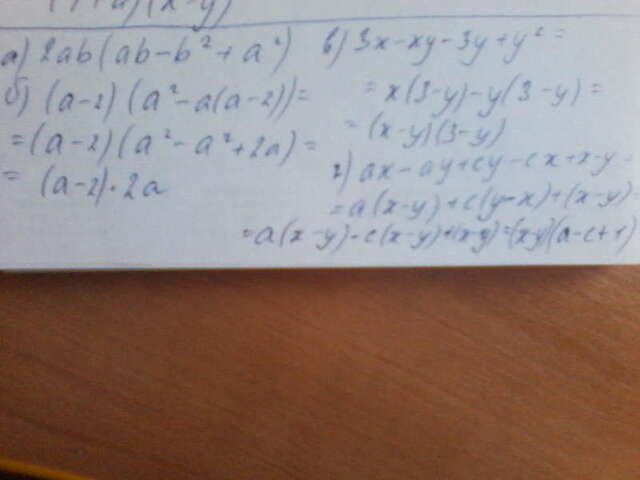 (x-y)
а) 2ab(ab-b²+a²)
б) (a-2)(a²-a(a-2))=
=(a-2)(a²-a²+2a)=
= (a-2)·2a
в) 3x-xy-3y+y²=
= x(3-y)-y(3-y)=
= (x-y)(3-y)
г) ax-ay+cy-cx+x-y=
=a(x-y)+c(y-x)+(x-y)=
=a(x-y)-c(x-y)+(x-y)=(x-y)(a-c+1)